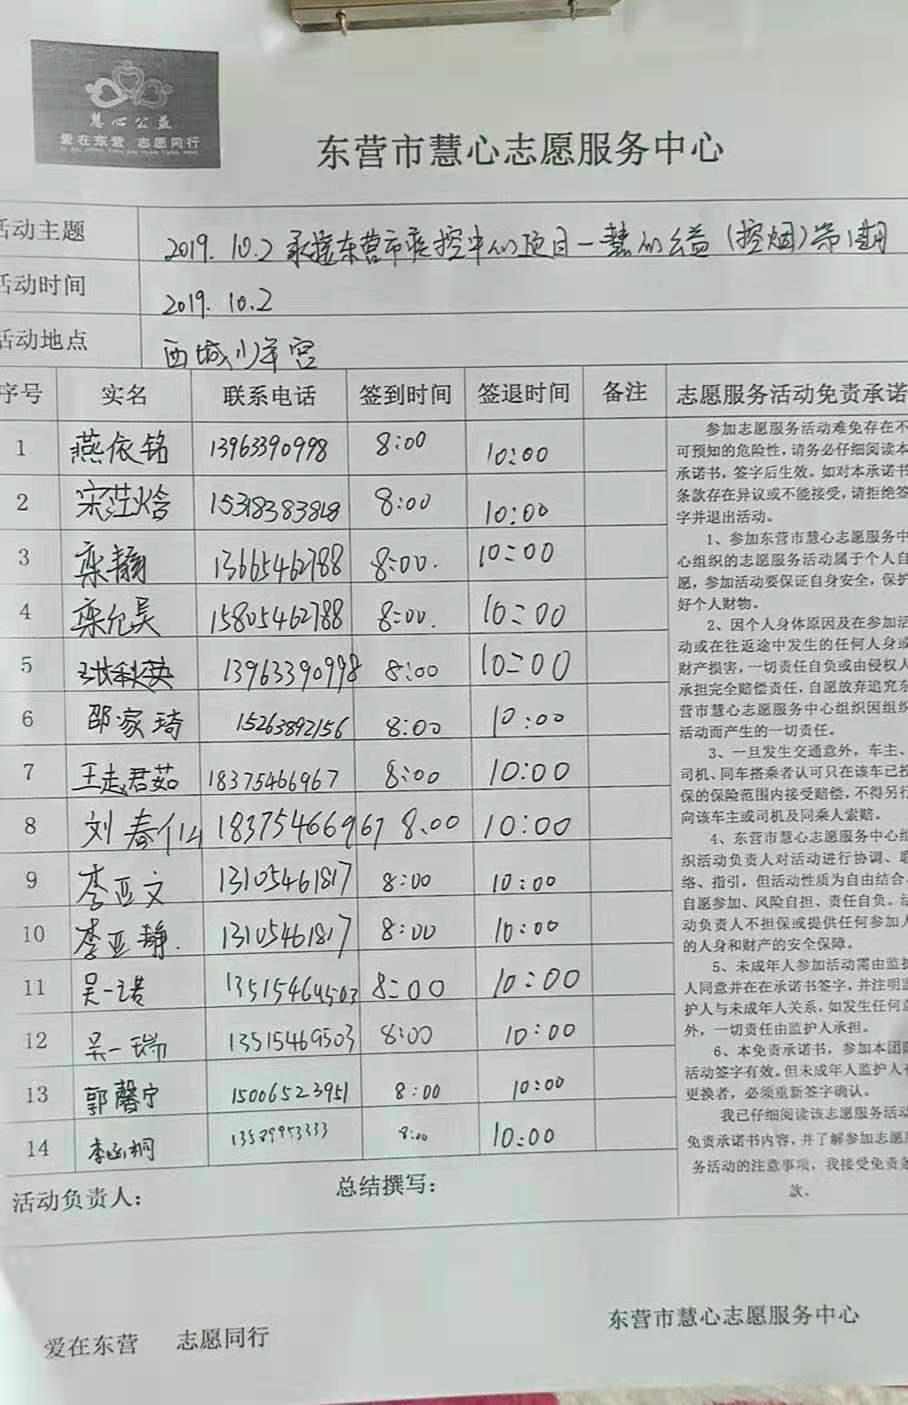 慧心公益
爱在东营 志愿同行
东营市慧心志愿服务中心
活动主题 2019.10.2 承接东营市疾控中心项目一慧心公益(控烟)第1期
活动时间 2019.10.2
活动地点 西城少年宫
序号 实名 联系电话 签到时间 签退时间 备注 志愿服务活动免责承诺
1 燕依铭 13963390998 8:00 10:00
2 宋 15318383818 8:00 10:00
3 栾翰 13665462788 8:00. 10:00
4 栾化昊 15805462788 8:00. 10:00
5 13963390998 8:00 10:00
6 邵家琦 15263892156 8:00 10:00
7 王赵君茹 18375466967 8:00 10:00
8 刘春仙 18375466967 8.00 10:00
9 李亚文 13105461817 8:00 10:00
10 李亚静. 13105461817 8:00 10:00
11 吴一诺 13515469503 8:00 10:00
12 吴一瑞 13515469503 8:00 10:00
13 郭馨宁 15006523951 8:00 10:00
14 李函桐 8:00 10:00
参加志愿服务活动难免存在不
可预知的危险性,请务必仔细阅读本
承诺书,签字后生效。如对本承诺书
条款存在异议或不能接受,请拒绝签
字并退出活动。
1、参加东营市慧心志愿服务中
心组织的志愿服务活动属于个人自
愿,参加活动要保证自身安全,保护
好个人财物。
2、因个人身体原因及在参加活
动或在往返途中发生的任何人身或
财产损害,一切责任自负或由侵权人
承担完全赔偿责任,自愿放弃追究东
营市慧心志愿服务中心组织因组织
活动而产生的一切责任。
3、一旦发生交通意外,车主、
司机、同车搭乘者认可只在该车已投
保的保险范围内接受赔偿,不得另行
向该车主或司机及同乘人索赔。
4、东营市慧心志愿服务中心组
织活动负责人对活动进行协调、联
络、指引,但活动性质为自由结合、
自愿参加、风险自担、责任自负。活
动负责人不担保或提供任何参加人
的人身和财产的安全保障。
5、未成年人参加活动需由监护
人同意并在在承诺书签字,并注明监
护人与未成年人关系,如发生任何意
外,一切责任由监护人承担。
6、本免责承诺书,参加本团队
活动签字有效。但未成年人监护人有
更换者,必须重新签字确认。
我已仔细阅读该志愿服务活动
免责承诺书内容,并了解参加志愿服
务活动的注意事项,我接受免责条
款。
活动负责人: 总结撰写:
爱在东营 志愿同行 东营市慧心志愿服务中心